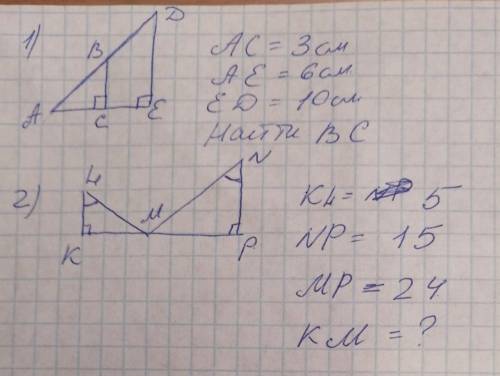 1)
D
B
A
C
E
AC = 3 см
AE = 6 см
ED = 10 см
Найти BC
2)
L
M
N
K
P
KL = 5
NP = 15
MP = 24
KM = ?